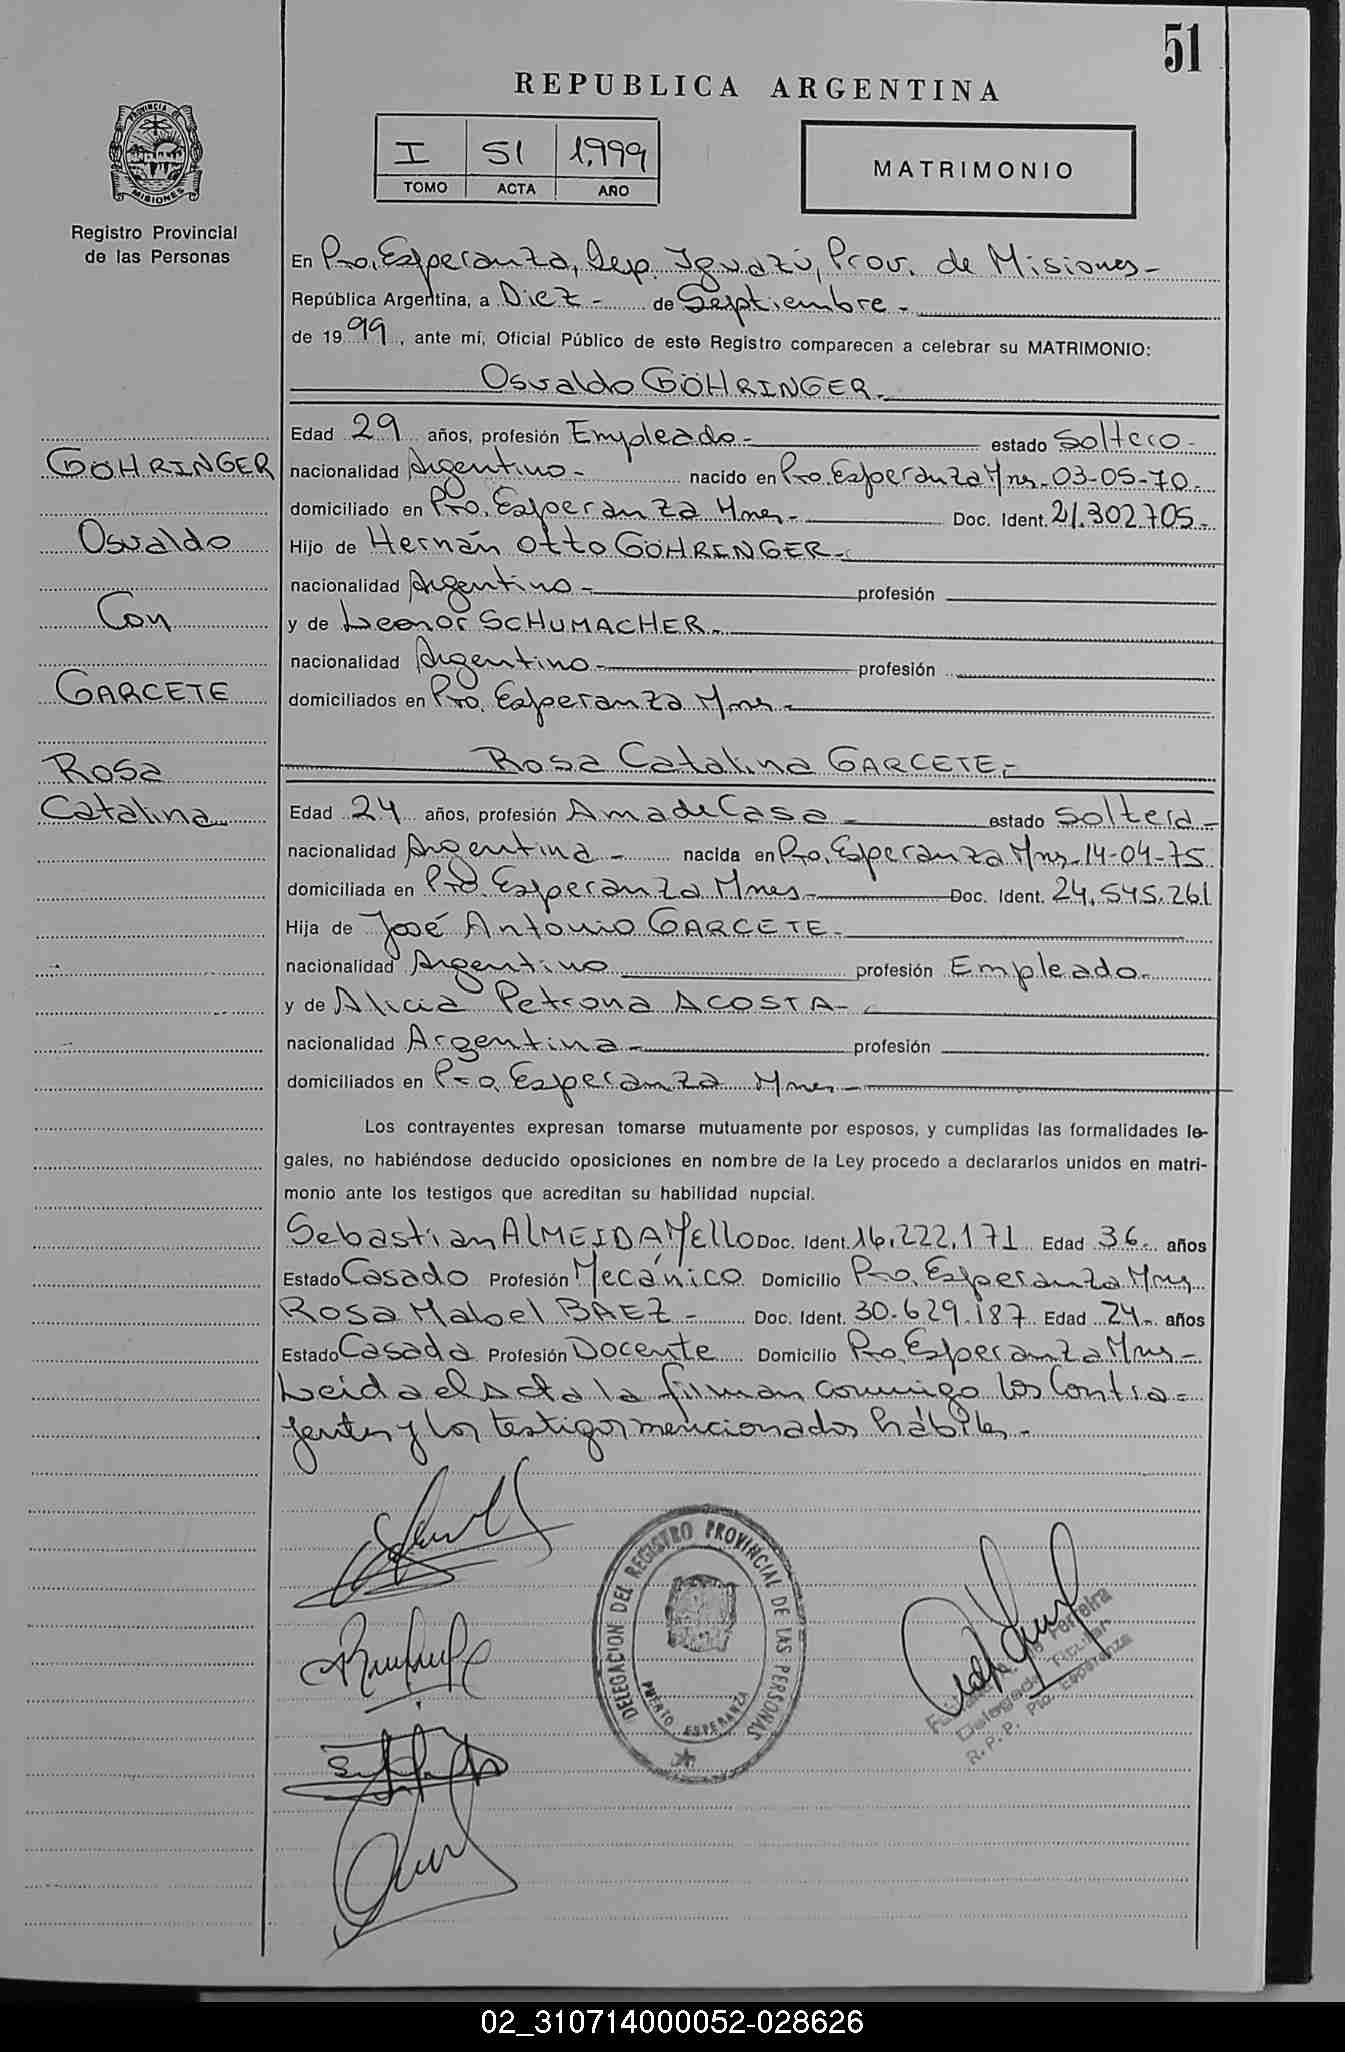 51
REPUBLICA ARGENTINA
I 51 1.999
TOMO ACTA AÑO
MATRIMONIO
PROVINCIA DE
MISIONES
Registro Provincial
de las Personas
En Pto. Esperanza, Dep. Iguazú, Prov. de Misiones-
República Argentina, a Diez- de Septiembre-
de 1999, ante mí, Oficial Público de este Registro comparecen a celebrar su MATRIMONIO:
Osvaldo GÖHRINGER-
Edad 29 años, profesión Empleado- estado Soltero-
nacionalidad Argentino- nacido en Pto. Esperanza Mnes-03-05-70-
domiciliado en Pto. Esperanza Mnes- Doc. Ident. 21.302.705-
Hijo de Hernán Otto GÖHRINGER-
nacionalidad Argentino- profesión
y de Leonor SCHUMACHER-
nacionalidad Argentino- profesión
domiciliados en Pto. Esperanza Mnes-
Rosa Catalina GARCETE-
Edad 24 años, profesión Ama de Casa- estado Soltera-
nacionalidad Argentina- nacida en Pto. Esperanza Mnes-14-04-75
domiciliada en Pto. Esperanza Mnes- Doc. Ident. 24.545.261
Hija de José Antonio GARCETE-
nacionalidad Argentino profesión Empleado-
y de Alicia Petrona ACOSTA-
nacionalidad Argentina- profesión
domiciliados en Pto. Esperanza Mnes-
GÖHRINGER
Osvaldo
Con
GARCETE
Rosa
Catalina
Los contrayentes expresan tomarse mutuamente por esposos, y cumplidas las formalidades le-
gales, no habiéndose deducido oposiciones en nombre de la Ley procedo a declararlos unidos en matri-
monio ante los testigos que acreditan su habilidad nupcial.
Sebastian ALMEIDA MELLO Doc. Ident. 16.222.171 Edad 36- años
Estado Casado Profesión Mecánico Domicilio Pto. Esperanza Mnes
Rosa Mabel BAEZ- Doc. Ident. 30.629.187 Edad 24- años
Estado Casada Profesión Docente Domicilio Pto. Esperanza Mnes-
Leida el Acta la firman conmigo los Contra-
yentes y los testigos mencionados hábiles-
DELEGACION DEL REGISTRO PROVINCIAL DE LAS PERSONAS
PUERTO ESPERANZA
Ferreira
Delegada Titular
R.P.P. Pto. Esperanza
02_310714000052-028626